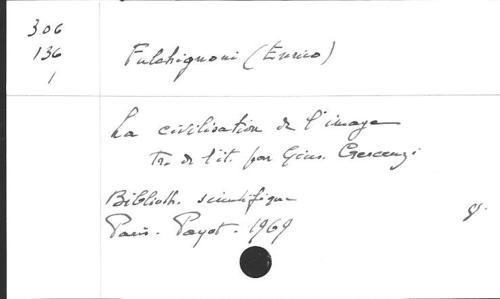 306
136
1
Fulchignoni (Enrico)
La civilisation de l'image
Tr. de l'it. par Gius. Crescenzi
Biblioth. scientifique
Paris. Payot. 1969